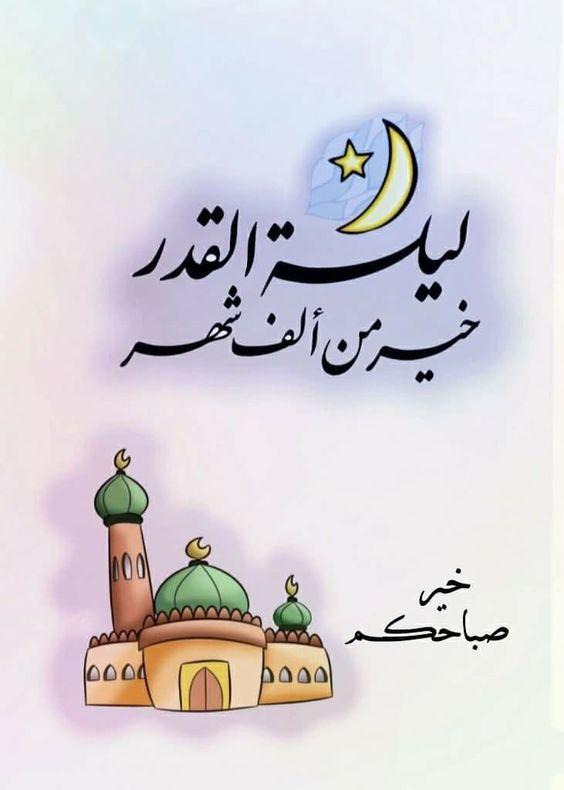 ليلة القدر
خير من ألف شهر
خير
صباحكم